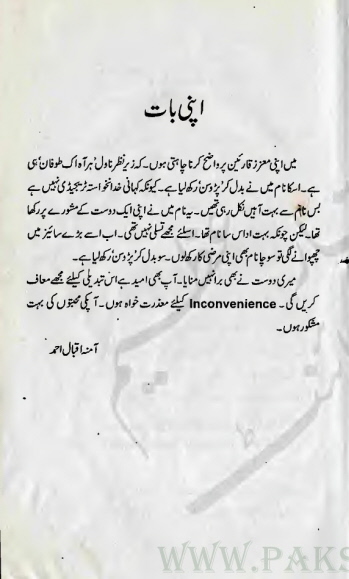 اپنی بات
میں اپنی معزز قارئین پر واضح کرنا چاہتی ہوں۔ کہ زیر نظر ناول 'ہر آہ اک طوفان' ہی
ہے۔ اسکا نام میں نے بدل کر 'پڑوسن' رکھ لیا ہے۔ کیونکہ کہانی خدانخواستہ ٹریجیڈی نہیں ہے
بس نام سے بہت آہیں نکل رہی تھیں۔ یہ نام میں نے اپنی ایک دوست کے مشورے پر رکھا
تھا۔ لیکن چونکہ بہت اداس سا نام تھا۔ اسلئے مجھے تسلی نہیں تھی۔ اب اسے بڑے سائیز میں
چھپوانے لگی تو سوچا نام بھی اپنی مرضی کا رکھ لوں۔ سو بدل کر 'پڑوسن' رکھ لیا ہے۔
میری دوست نے بھی برا نہیں منایا۔ آپ بھی امید ہے اس تبدیلی کیلئے مجھے معاف
کریں گی۔ Inconvenience کیلئے معذرت خواہ ہوں۔ آپکی محبتوں کی بہت
مشکور ہوں۔
آمنہ اقبال احمد
WWW.PAKS